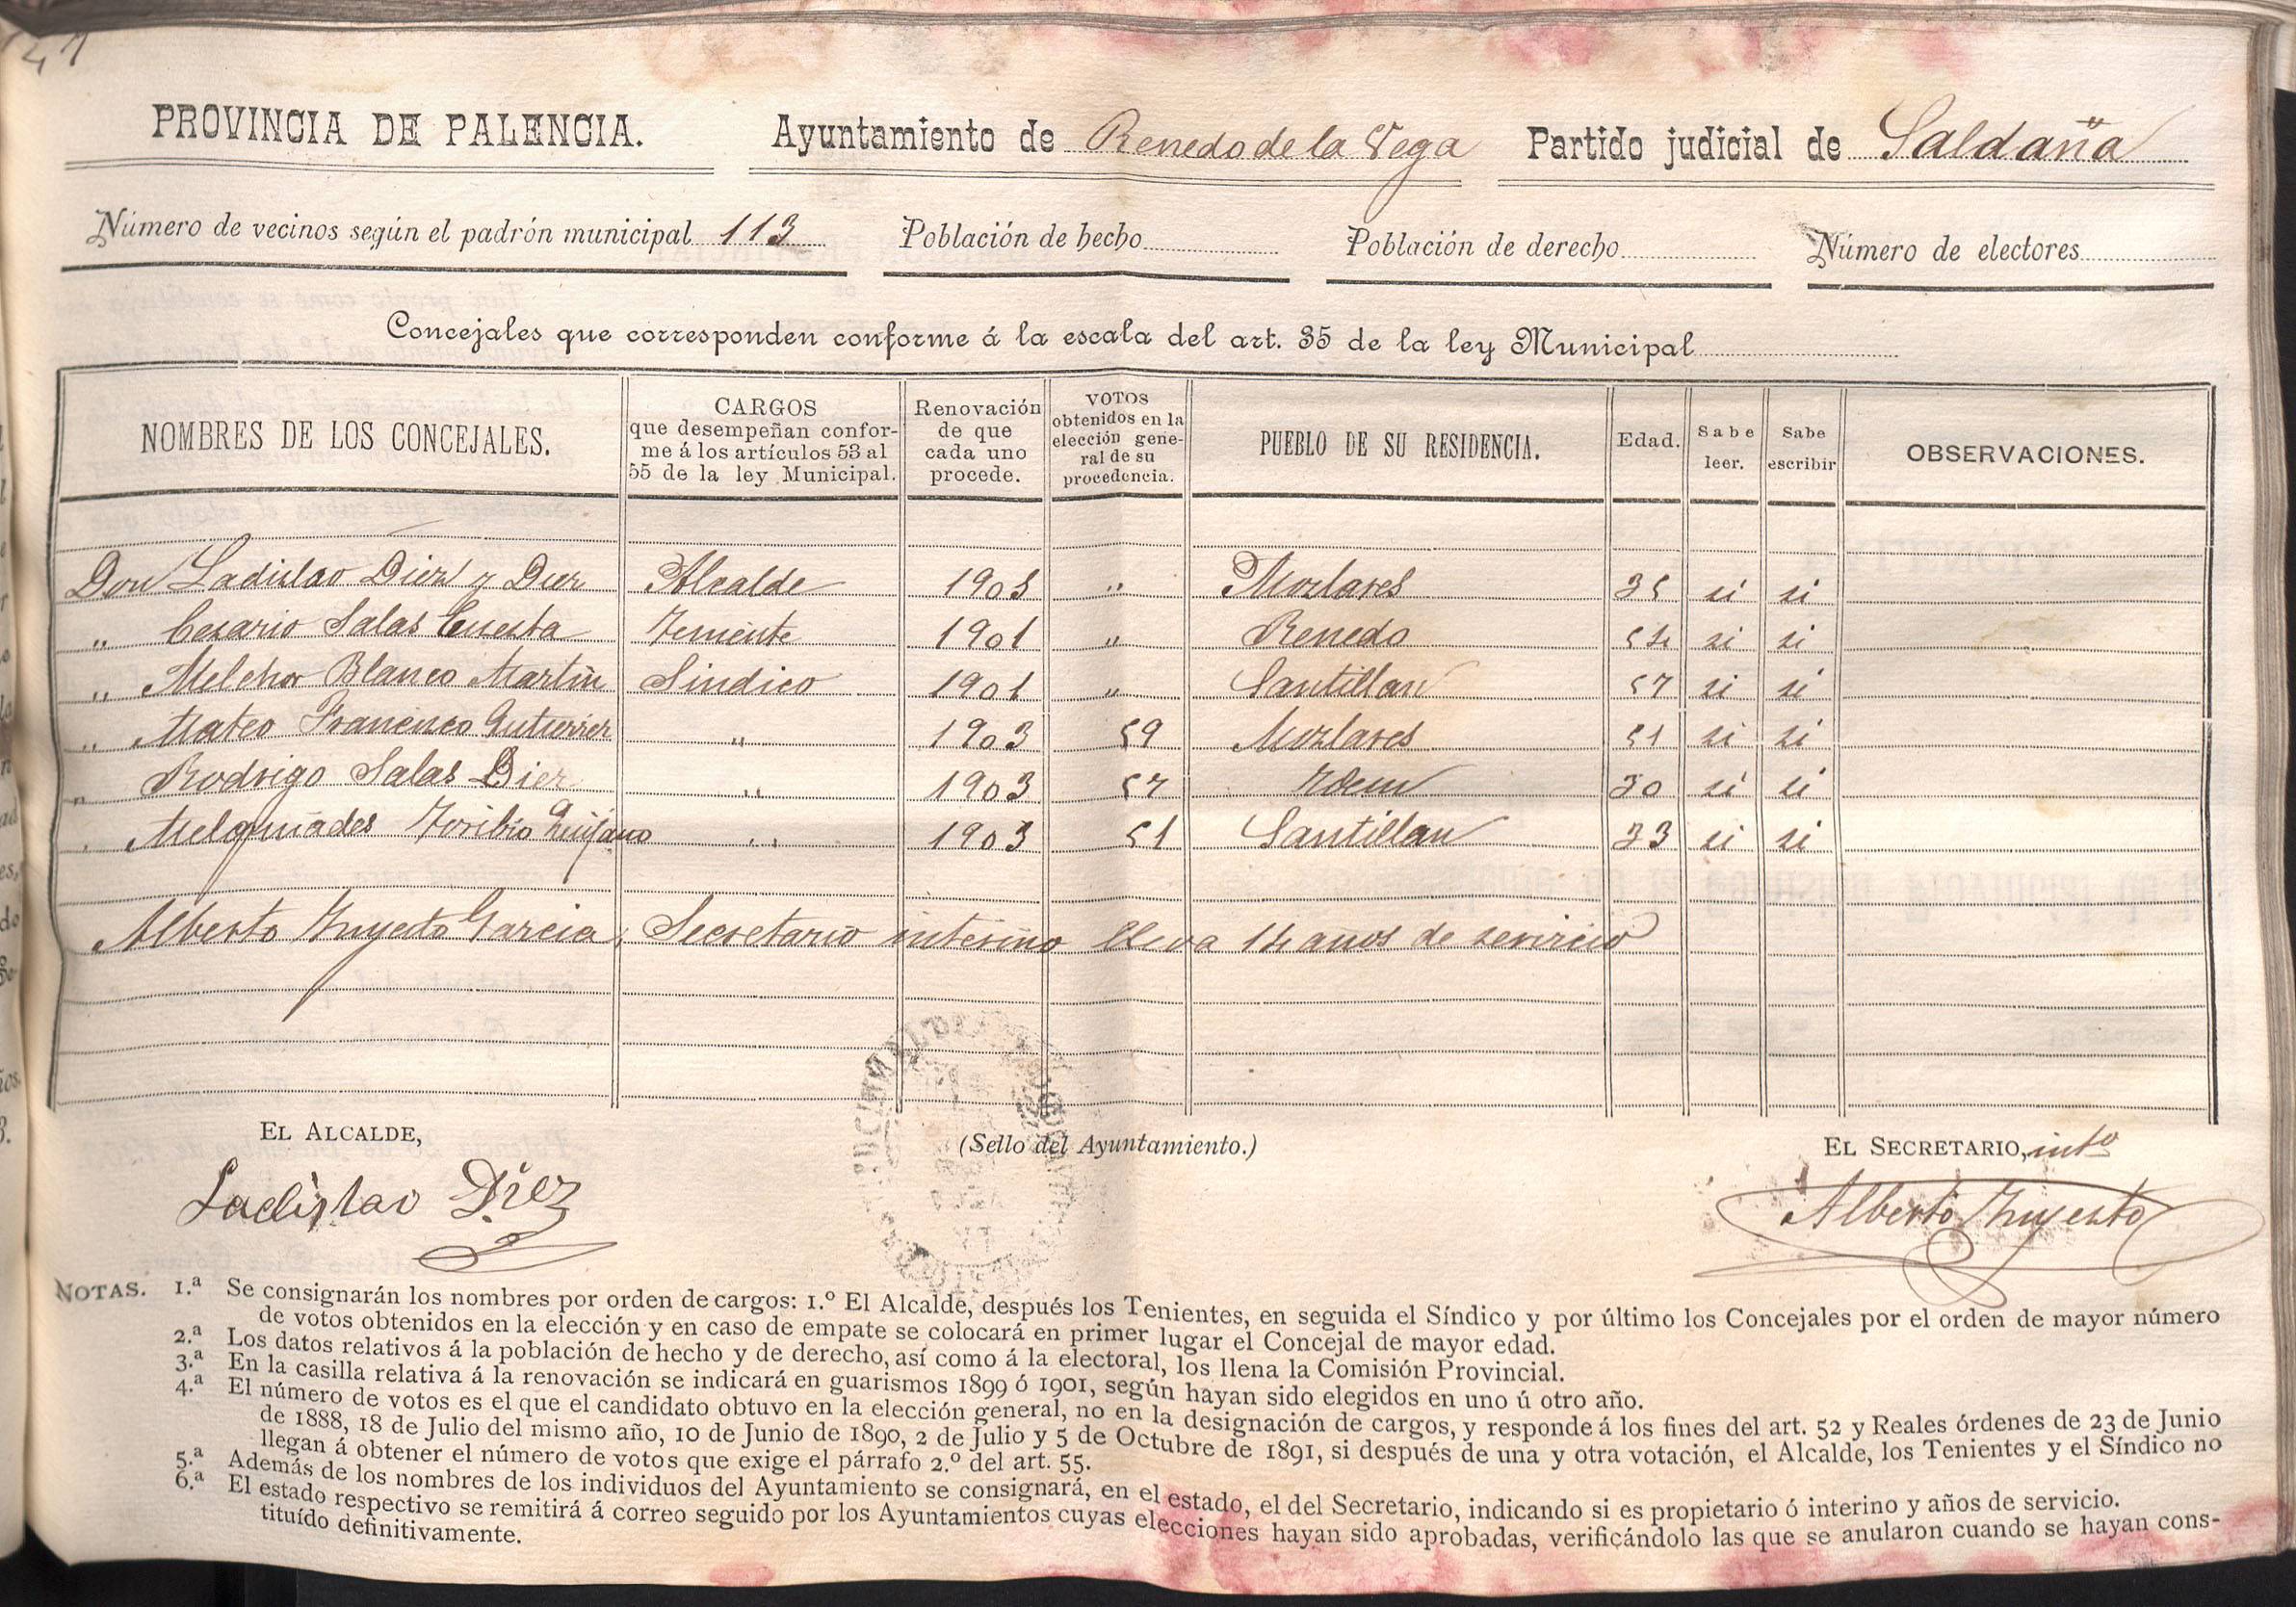 47
PROVINCIA DE PALENCIA. Ayuntamiento de Renedo de la Vega Partido judicial de Saldaña
Número de vecinos según el padrón municipal 113 Población de hecho Población de derecho Número de electores
Concejales que corresponden conforme á la escala del art. 35 de la ley Municipal
NOMBRES DE LOS CONCEJALES. CARGOS que desempeñan conforme á los artículos 53 al 55 de la ley Municipal. Renovación de que cada uno procede. VOTOS obtenidos en la elección general de su procedencia. PUEBLO DE SU RESIDENCIA. Edad. Sabe leer. Sabe escribir OBSERVACIONES.
Don Ladislao Diez y Diez Alcalde 1903 " Mozlares 35 si si
" Cesario Salas Cuesta Teniente 1901 " Renedo 54 si si
" Melchor Blanco Martin Sindico 1901 " Santillan 57 si si
" Mateo Francisco Gutierrez " 1903 59 Mozlares 51 si si
" Rodrigo Salas Diez " 1903 57 Idem 30 si si
" Melquiades Toribio Quijano " 1903 51 Santillan 33 si si
Alberto Inyesto Garcia, Secretario interino lleva 14 años de servicio
EL ALCALDE, (Sello del Ayuntamiento.) EL SECRETARIO, into
Ladislao Diez Alberto Inyesto
NOTAS. 1.ª Se consignarán los nombres por orden de cargos: 1.º El Alcalde, después los Tenientes, en seguida el Síndico y por último los Concejales por el orden de mayor número
de votos obtenidos en la elección y en caso de empate se colocará en primer lugar el Concejal de mayor edad.
2.ª Los datos relativos á la población de hecho y de derecho, así como á la electoral, los llena la Comisión Provincial.
3.ª En la casilla relativa á la renovación se indicará en guarismos 1899 ó 1901, según hayan sido elegidos en uno ú otro año.
4.ª El número de votos es el que el candidato obtuvo en la elección general, no en la designación de cargos, y responde á los fines del art. 52 y Reales órdenes de 23 de Junio
de 1888, 18 de Julio del mismo año, 10 de Junio de 1890, 2 de Julio y 5 de Octubre de 1891, si después de una y otra votación, el Alcalde, los Tenientes y el Síndico no
llegan á obtener el número de votos que exige el párrafo 2.º del art. 55.
5.ª Además de los nombres de los individuos del Ayuntamiento se consignará, en el estado, el del Secretario, indicando si es propietario ó interino y años de servicio.
6.ª El estado respectivo se remitirá á correo seguido por los Ayuntamientos cuyas elecciones hayan sido aprobadas, verificándolo las que se anularon cuando se hayan cons-
tituído definitivamente.